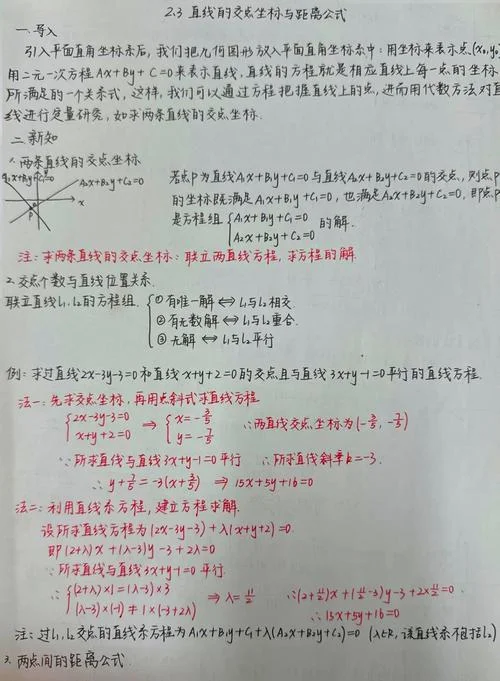 2.3 直线的交点坐标与距离公式
一.导入
引入平面直角坐标系后,我们把几何图形放入平面直角坐标系中:用坐标来表示点(x₀,y₀)
用二元一次方程Ax+By+C=0来表示直线.直线的方程就是相应直线上每一点的坐标
所满足的一个关系式,这样,我们可以通过方程把握直线上的点,进而用代数方法对直
线进行定量研究,如求两条直线的交点坐标.
二.新知
1.两条直线的交点坐标
A₁x+B₁y+C₁=0
A₂x+B₂y+C₂=0
x
P
若点P为直线A₁x+B₁y+C₁=0与直线A₂x+B₂y+C₂=0的交点,则点P
的坐标既满足A₁x+B₁y+C₁=0,也满足A₂x+B₂y+C₂=0,即点P
是方程组{A₁x+B₁y+C₁=0 的解.
A₂x+B₂y+C₂=0
注:求两条直线的交点坐标:联立两直线方程,求方程的解.
2.交点个数与直线位置关系.
联立直线l₁,l₂的方程组.
①有唯一解⇔l₁与l₂相交.
②有无数解⇔l₁与l₂重合.
③无解⇔l₁与l₂平行
例:求过直线2x-3y-3=0和直线x+y+2=0的交点且与直线3x+y-1=0平行的直线方程.
法一:先求交点坐标,再用点斜式求直线方程
{2x-3y-3=0 ⇒ {x=-3/5 ∴两直线交点坐标为(-3/5,-7/5)
x+y+2=0 y=-7/5
∵所求直线与直线3x+y-1=0平行 ∴所求直线斜率k=-3.
∴y+7/5=-3(x+3/5) ⇒ 15x+5y+16=0
法二:利用直线系方程,建立方程求解.
设所求直线方程为(2x-3y-3)+λ(x+y+2)=0.
即(2+λ)x+(λ-3)y-3+2λ=0
∵所求直线与直线3x+y-1=0平行.
∴{(2+λ)×1=(λ-3)×3 ⇒λ=11/2 ∴(2+11/2)x+(11/2-3)y-3+2×11/2=0
(λ-3)×(-1)≠1×(-3+2λ) ∴15x+5y+16=0
注:过l₁,l₂交点的直线系方程为A₁x+B₁y+C₁+λ(A₂x+B₂y+C₂)=0 (λ∈R,该直线系不包括l₂)
3.两点间的距离公式